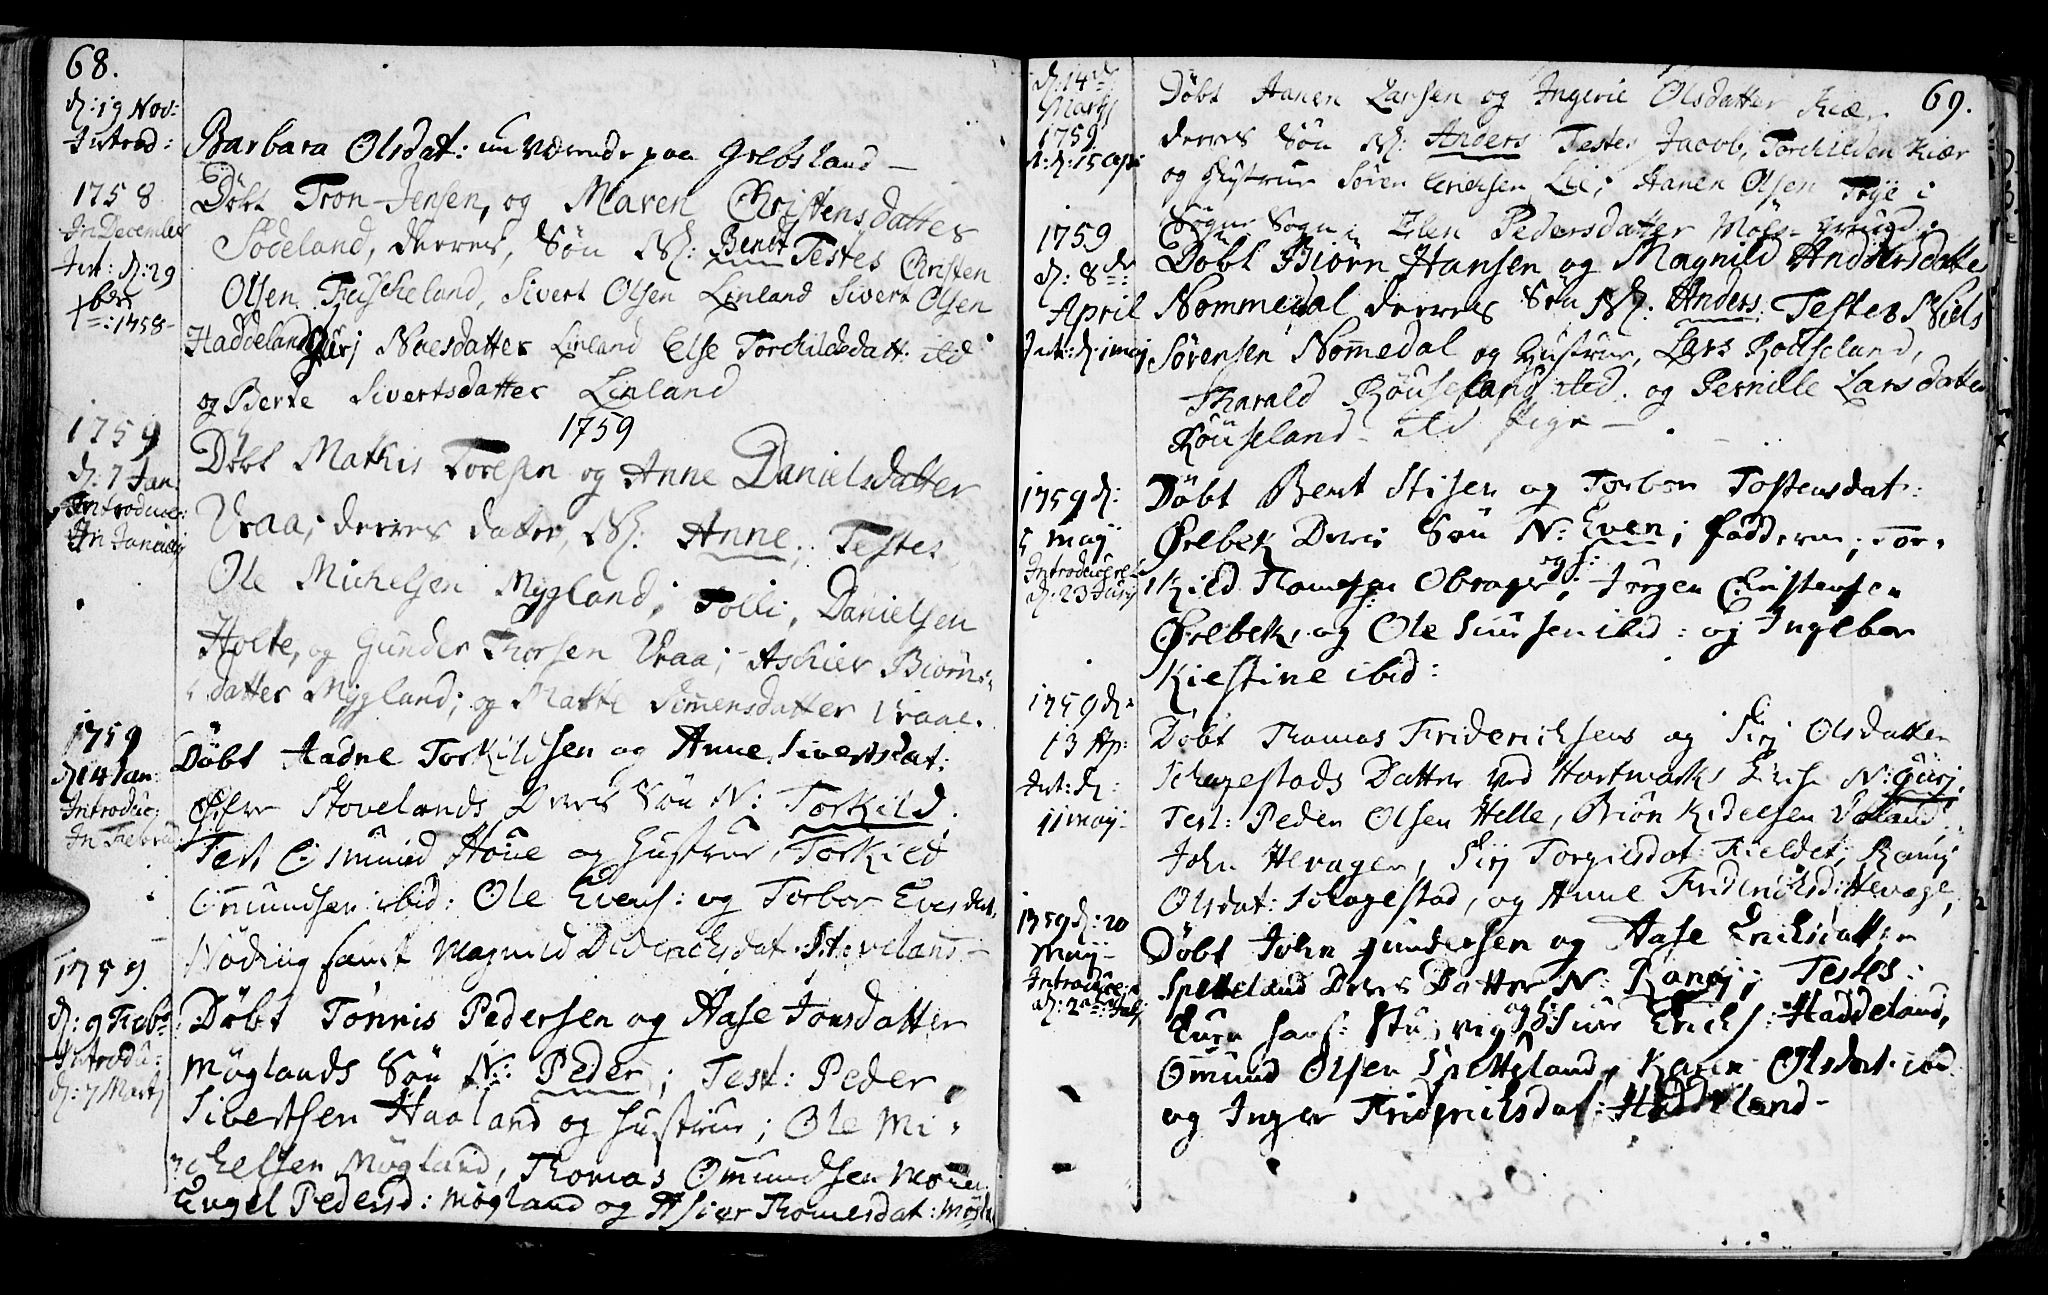 68.
d: 19 Nov:
Introd:
Barbara Olsdat: nu værende paa Grebsland –
1758
In December
Int: d: 29
xbr: 1758 –
Døbt Tron Jensen, og Maren Christensdatter
Sodeland, derres Søn N: Bendt Testes Christen
Olsen Fuscheland, Sivert Olsen Linland Sivert Olsen
Haddeland, Siri Noesdatter Linland Else Torchildsdatt: ibd
og Berte Sivertsdatter Linland
1759
1759
d: 7 Jan
Introduc:
In Januarij
Døbt Mathis Toresen og Anne Danielsdatter
Vraa; derres datter, N: Anne; Testes,
Ole Michelsen Mygland; Tolli, Danielsen
Holte, og Gunder Thorsen Vraa; Aschier Biørns
datter Mygland; og Marte Simensdatter Vraae.
1759
d 14 Jan:
Introduc:
In Febru:
Døbt Aadne Torkildsen og Anne Sivertsdat:
Øfre Stovelands Deres Søn N: Torkild.
Test, Osmund Houe og hustrue, Torkild
Omundsen ibid: Ole Evens: og Torbor Evesdat:
Nøding samt Magnild Diderichsdat: Stoveland –
1759.
d: 9 Febr:
Introdu:
d: 7 Martj
Døbt Tønnis Pedersen og Aase Jonsdatter
Møglands Søn N: Peder; Test: Peder
Sivertsen Haaland og hustrue; Ole Mi-
chelsen Møgland, Thomas Omundsen
Engel Pedersd: Møgland og Asier Thomesdat: Mögl:
69.
d: 14de
Martj
1759
I: d: 15 ap:
Døbt Hanen Larsen og Ingerie Olsdatter Kiær
derres Søn N: Anders Testes Jacob, Torchildsen Kiær
og Hustrue Søren Erichsen Lie; Hanen Olsen Trye i
Søgne Sogn; Elen Pedersdatter
1759
d: 8de
April
Int: d: 1 maj
Døbt Biørn Hansen og Magnild Andersdatter
Nommedal derres Søn N: Anders Testes Niels
Sörensen Nommedal og Hustrue, Lars Röuseland,
Tharald Röuseland ibd. og Pernille Larsdatter
Röuseland – ibd pige –
1759 d:
5 maij
Introduceret
d: 23 Junj
Døbt Bent Stisen og Torbor Tostensdat:
Ørebek Deris Søn N: Even; faddere; Tor-
kild Thomesen Obrager; og h: Jørgen Christense-n
Ørebek, og Ole Siursen ibid: og Ingebor
Kiestine ibid:
1759 d:
13 Ap:
Int: d:
11 maij
Døbt Thomas Friderichsens og Siri Olsdatter
Schagestads Datter ved Hartmarks Kirke N: Guri
Test: Peder Olsen Helle, Briön Kidelsen
John Hevager, Siri Torgiesdat: Fieldet, Ranij
Olsdat: Schagestad, og Anne Friderichsd: Hevage,
1759 d: 20
Maij –
Introduce
d: 2den Julj
Døbt John Gundersen og Aase Erichsdatter
Spetteland Deres Datter N: Ranej; Testes:
Even Hans: Stu; vig og h: Siur Erichs: Haddeland,
Omund Olsen Spetteland, Karen Olsdat: ibd
og Inger Friderichsdat: Haddeland –